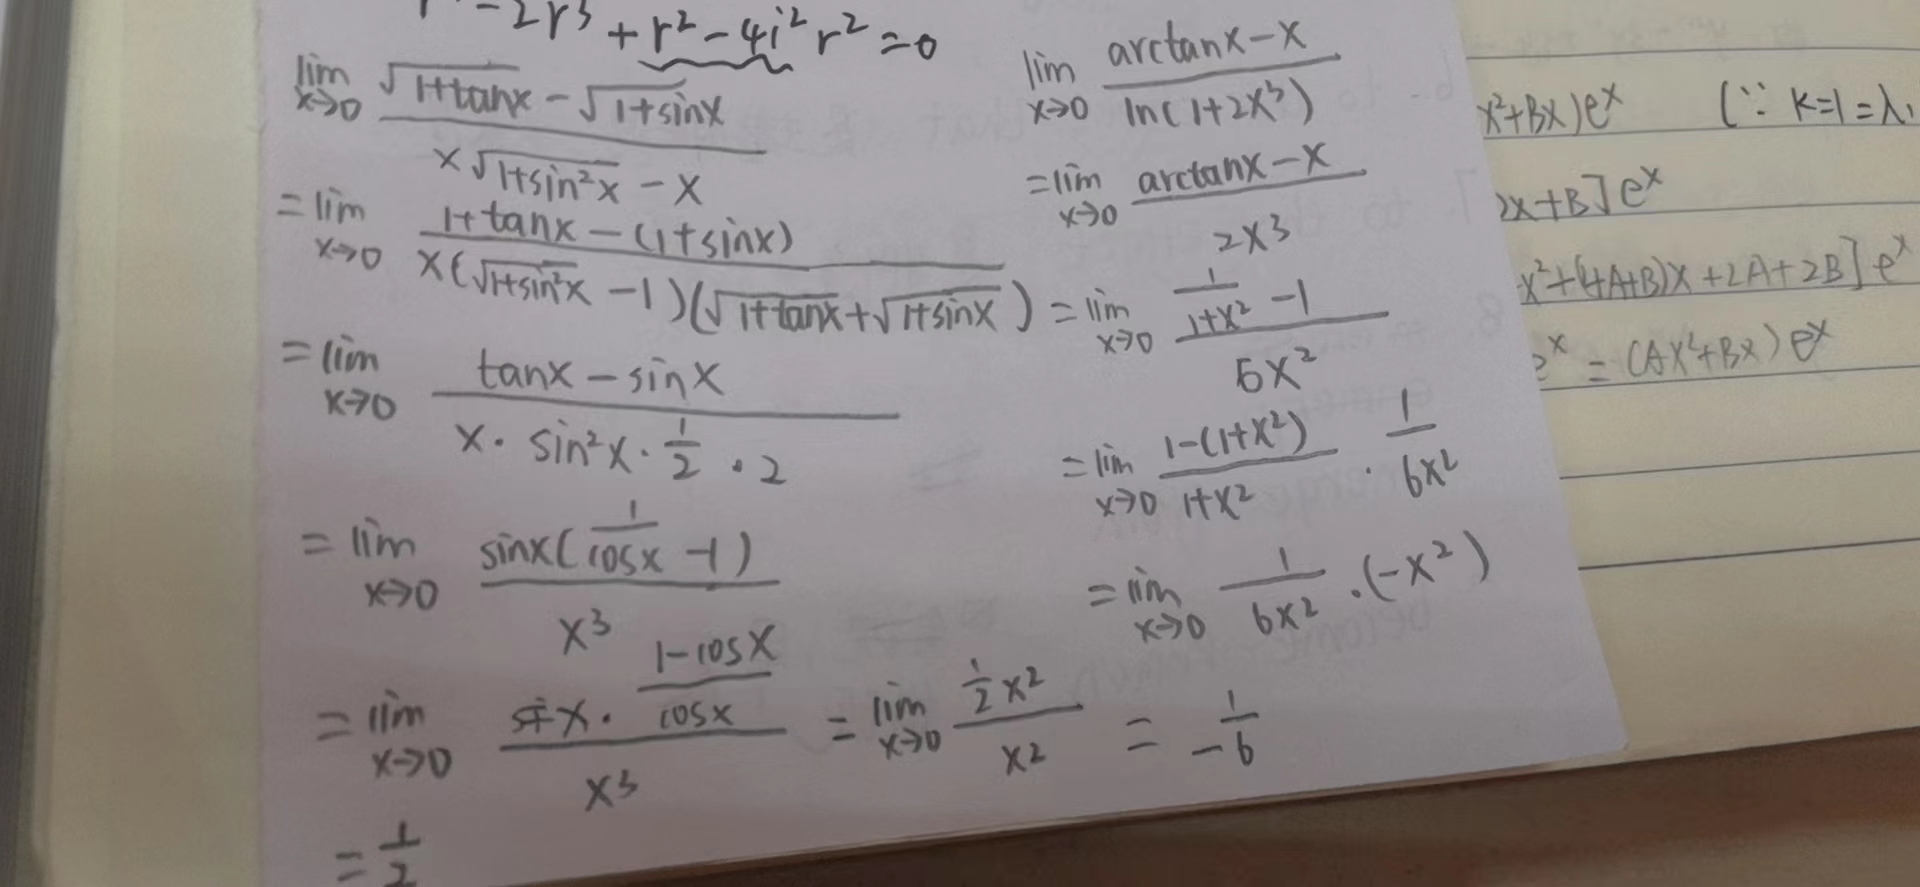 -2r³+r²-4i²r²=0
lim x→0 (√(1+tanx) - √(1+sinx)) / (x√(1+sin²x) - x)
= lim x→0 (1+tanx-(1+sinx)) / (x(√(1+sin²x) -1)(√(1+tanx)+√(1+sinx)))
= lim x→0 (tanx-sinx) / (x·sin²x·1/2·2)
= lim x→0 (sinx(1/cosx -1)) / x³
= lim x→0 (sinx·(1-cosx)/cosx) / x³ = lim x→0 (1/2 x²) / x²
= 1/2
lim x→0 (arctanx-x) / ln(1+2x³)
= lim x→0 (arctanx-x) / 2x³
= lim x→0 (1/(1+x²) -1) / 6x²
= lim x→0 (1-(1+x²))/(1+x²) · 1/6x²
= lim x→0 1/6x² ·(-x²)
= 1/-6
x²+Bx)eˣ (∵ k=1=λ₁
2x+B]eˣ
x²+(4A+B)x+2A+2B]eˣ
eˣ = (Ax²+Bx)eˣ